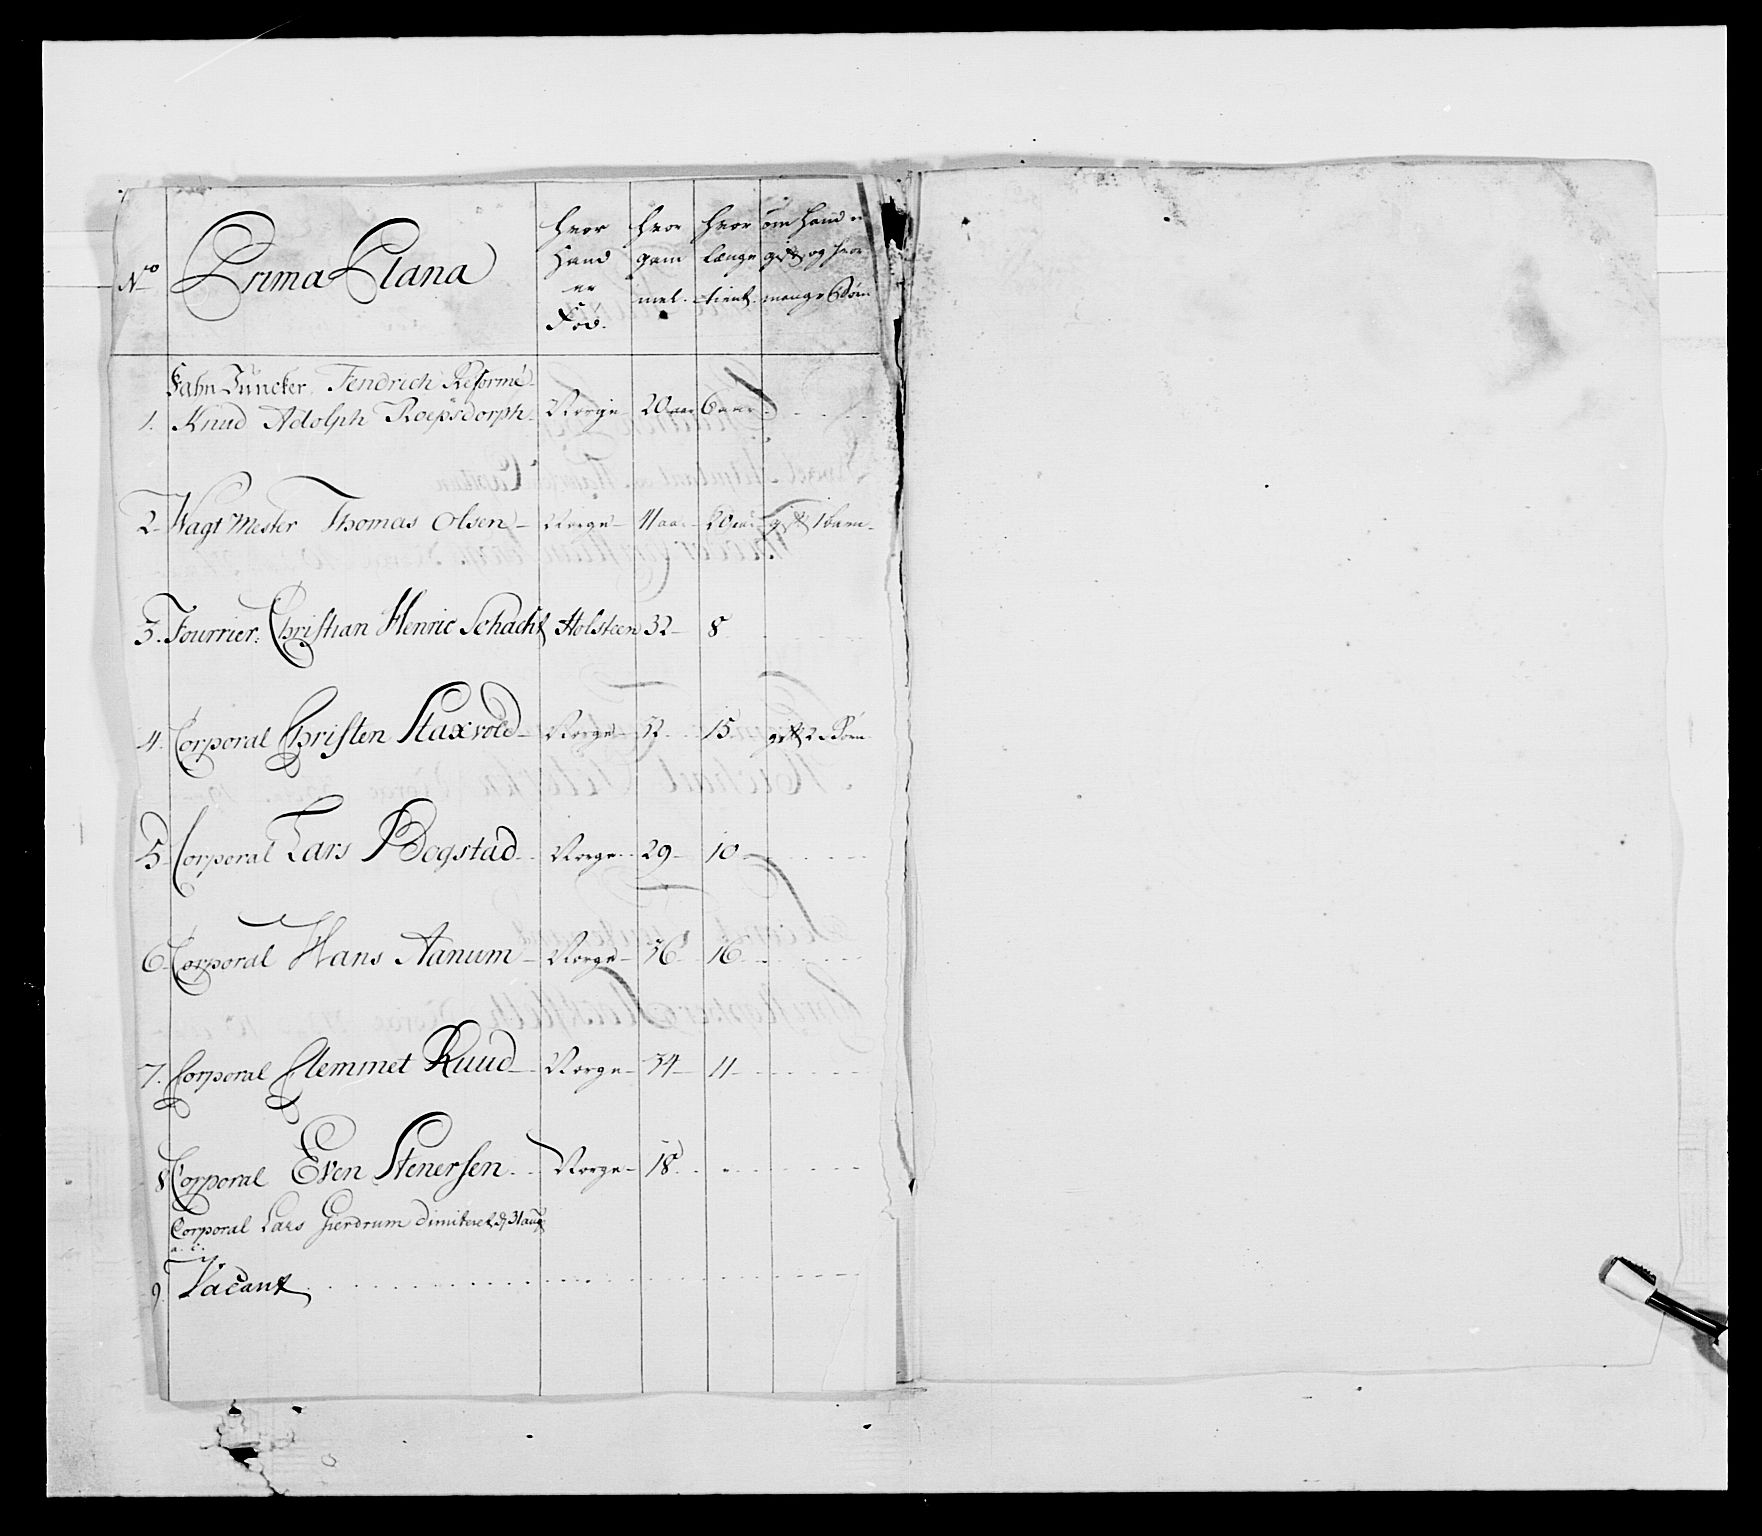 No Prima Plana hvor Hand er Fød. hvor gam mel. hvor længe tient. om Hand er gift og hvor mange Børn
Fahn Juncker. Fendrich Reformé
1. Knud Adolph Roepsdorph. Norge 20 aar 6 aar
2. Wagt Mester Thomas Olsen Norge 41 aar 20 aar gift 1 barn
3. Fourrier. Christian Henric Schacht Holsteen 32 8
4. Corporal Christen Staxvold Norge 52 15 gift 2 Børn
5. Corporal Lars Bogstad Norge 29 10
6. Corporal Hans Aanum Norge 36 16
7. Corporal Clemmet Ruud Norge 34 11
8 Corporal Even Stenersen Norge 18
Corporal Lars Gierdrum dimiteret d 31 aug
a. c.
9. Vacant